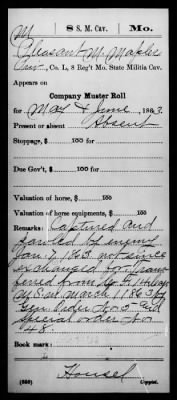 M | 8 S. M. Cav. | Mo.
Pleasant M. Maples
Co. L, 8 Reg't Mo. State Militia Cav.
Appears on
Company Muster Roll
for May & June, 1863.
Present or absent Absent
Stoppage, $ 100 for
Due Gov't, $ 100 for
Valuation of horse, $ 100
Valuation of horse equipments, $ 100
Remarks: Captured and
paroled by enemy
Jan. 7, 1863. not since
exchanged for. Trans
ferred from Co.
March 1863 by
Gen Order No 5 and
Special order No.
48.
Book mark:
Housel
(356) Copyist.